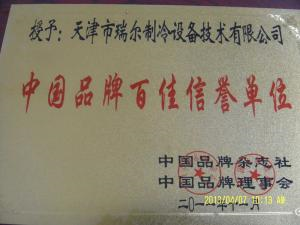 授予：天津市瑞尔制冷设备技术有限公司
中国品牌百佳信誉单位
中国品牌杂志社
中国品牌理事会
二〇一一年十一月
2013/04/07 10:13 AM